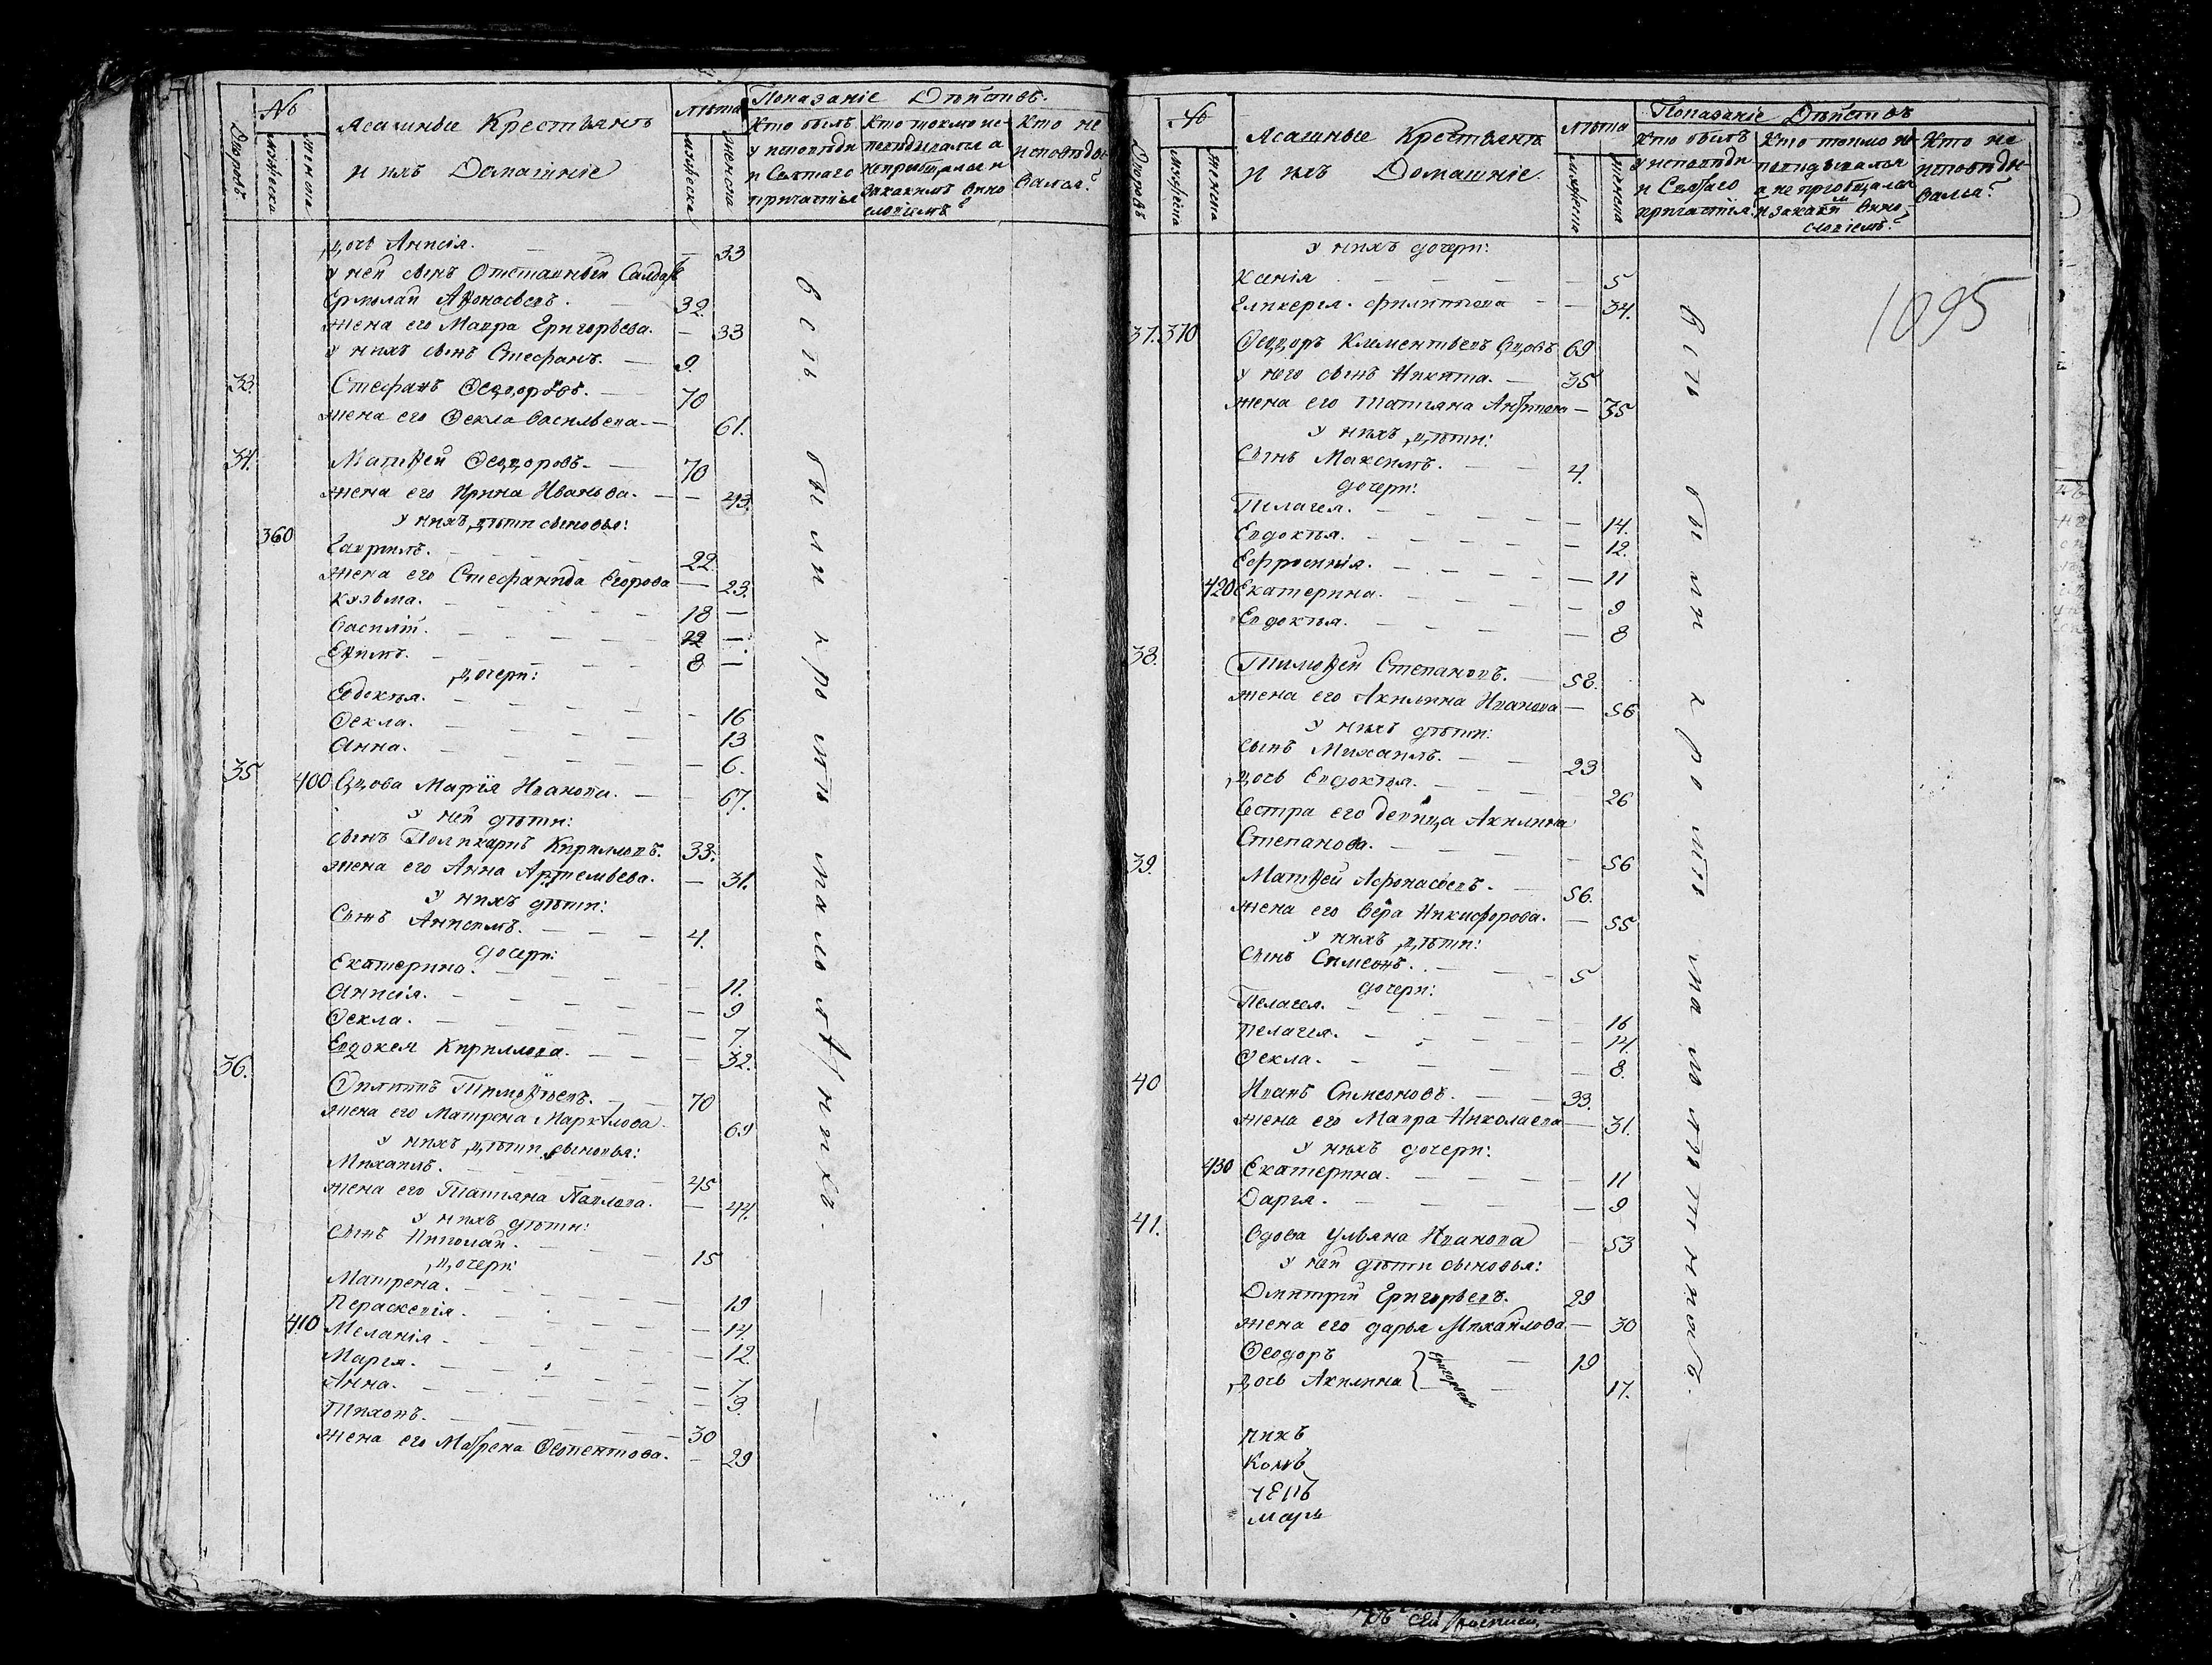 №
Дворовъ.
мужеска
женска
Ясашные Крестьянъ
и ихъ Домашніе
лѣта
мужеска
женска
Показаніе Дѣйствъ.
Кто былъ у исповѣди и Святаго причастія
Кто токмо исповѣдывался а непрічащался и закакимъ винословіемъ?
Кто не исповѣдывался?
дочь Анисія. 33
у ней сынъ Отставный Салдатъ
Ермолай Аѳонасьевъ. 32.
жена его Мавра Григорьева. — 33
у нихъ сынъ Стефанъ. — 9.
33. Стефанъ Ѳедоровъ. — 70
жена его Ѳекла Васильева. — 61.
34. Матѳей Ѳедоровъ. — 70
жена его Ирина Иванова. — 43.
у нихъ дѣти сыновья:
360 Гаврилъ. 22.
жена его Стефанида Егорова — 23.
Кузьма. 18 —
Василій. 12 —
Еѳимъ. 8 —
дочери:
Евдокѣя. 16
Ѳекла. 13
Анна. 6.
35. 400 Вдова Марія Иванова. — 67.
у ней дѣти:
сынъ Поликарпъ Кирилловъ. 33.
жена его Анна Артемьева. — 31.
у нихъ дѣти:
Сынъ Анисимъ. 4.
дочери:
Екатерина. 11.
Анисія. 9
Ѳекла. 7.
Евдокея Кириллова. — 32.
36. Филиппъ Тимоѳѣевъ. 70
жена его Матрена Маркѣлова 69
у нихъ дѣти сыновья:
Михаилъ. 45
жена его Татьяна Павлова. — 44.
у нихъ дѣти:
Сынъ Николай. 15
дочери:
Матрена. 19
Пераскевія. 14.
410 Меланія. 12.
Марья. 7
Анна. 3.
Тихонъ. 30
жена его Матрена Ѳеопентова. — 29
всѣ были кромѣ малолѣтнихъ.
№
Дворовъ
мужеска
женска
Ясашные Крестьянъ
и ихъ Домашніе.
лѣта
мужеска
женска
Показаніе Дѣйствъ
Кто былъ у исповѣди и Святаго причастія.
Кто токмо исповѣдывался а не прiобщался и закакимъ винословіемъ?
Кто не исповѣдывался?
1095
у нихъ дочери:
Ксенія 5
Гликерья. Филиппова — 34.
37. 370 Ѳедоръ Клементьевъ Вдовъ 69
у него сынъ Никита. — 35
жена его Татьяна Антипова — 35
у нихъ дѣти:
Сынъ Максимъ. 4.
дочери:
Пелагея. 14.
Евдокѣя. 12.
Ефросинія. 11
420 Екатерина. 9
Евдокѣя. 8
38. Тимоѳей Степановъ. 58.
жена его Акилина Иванова — 56
у нихъ дѣти:
сынъ Михаилъ. 23
дочь Евдокѣя. 26
Сестра его девица Акилина
Степанова. 56
39. Матѳей Афонасьевъ. 56.
жена его Вера Никифорова. — 55
у нихъ дѣти:
Сынъ Симеонъ. 5
дочери:
Пелагея. 16
Пелагея. 14.
Ѳекла. 8.
40 Иванъ Симеоновъ. 33.
жена его Мавра Николаева — 31.
у нихъ дочери:
430 Екатерина. 11
Дарья. 9
41. Вдова Ульяна Иванова 53
у ней дѣти сыновья:
Дмитрій Григорьевъ. 29
жена его дарья Михайлова — 30
Ѳеодоръ 19
дочь Акилина } Григорьевы 17.
всѣ были кромѣ малолѣтнихъ.
никъ
Комъ
маръ